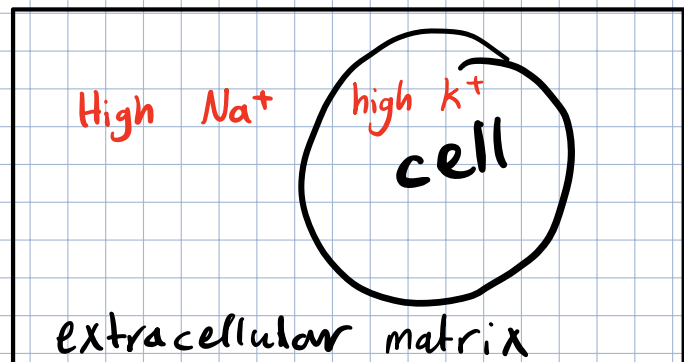 High Na⁺ high K⁺
cell
extracellular matrix